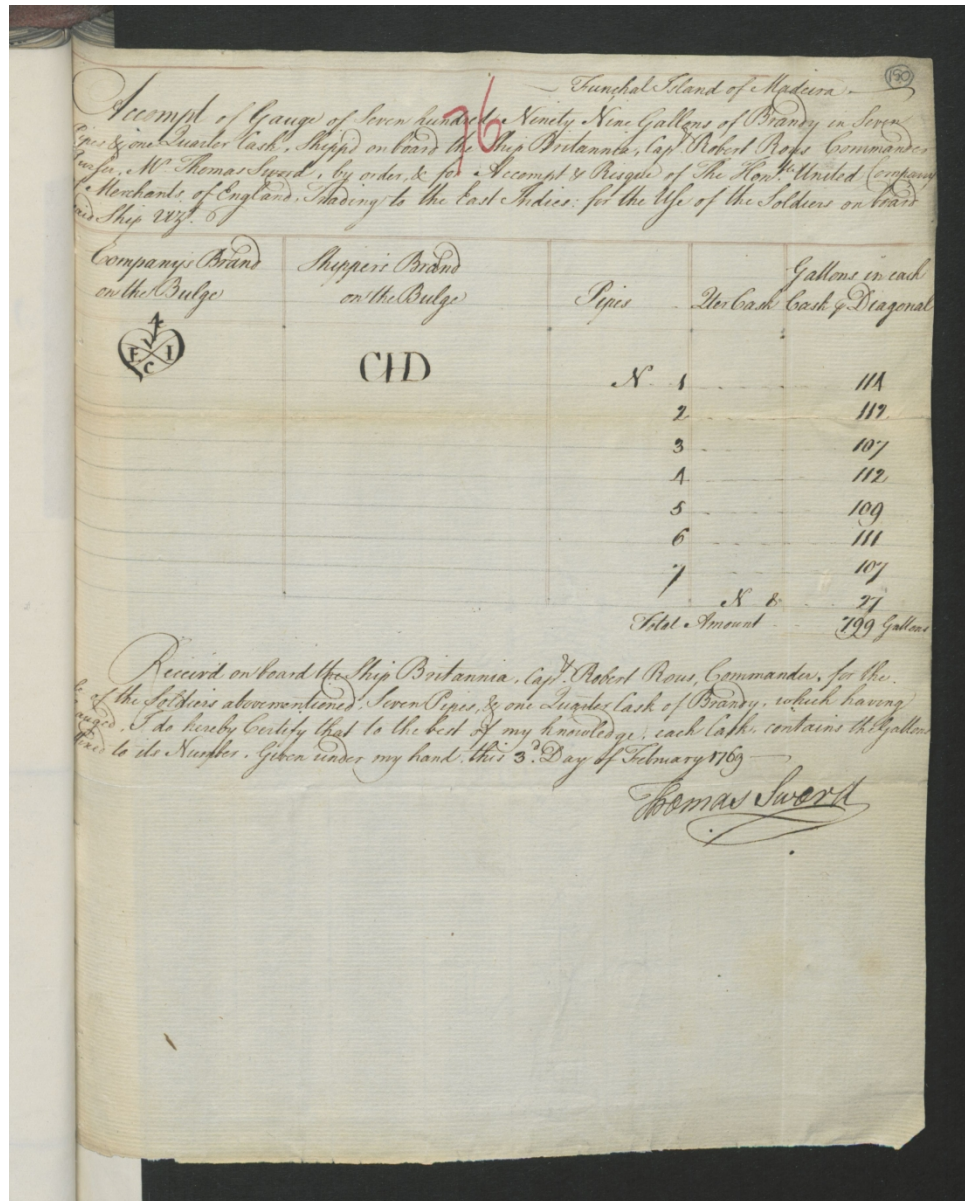 190
76
Funchal Island of Madeira
Accompt of Gauge of Seven hundred Ninety Nine Gallons of Brandy in Seven
Pipes & one Quarter Cask, Shipp'd on board the Ship Britannia, Cap.t Robert Rous Commander
Purser, Mr. Thomas Sword, by order, & for Accompt & Risque of The Hon.ble United Company
of Merchants of England, Trading to the East Indies: for the Use of the Soldiers on board
said Ship Viz.
Company's Brand on the Bulge
Shipper's Brand on the Bulge
Pipes
Qter Cask
Gallons in each Cask p Diagonal
F I C
CHD
N. 1 114
2 112
3 107
4 112
5 109
6 111
7 107
N 8 27
Total Amount 799 Gallons
Receiv'd on board the Ship Britannia, Cap.t Robert Rous, Commander, for the
of the Soldiers abovementioned, Seven Pipes, & one Quarter Cask of Brandy, which having
gauged, I do hereby Certify that to the best of my knowledge, each Cask, contains the Gallons
to its Number. Given under my hand this 3.d Day of February 1769
Thomas Sword